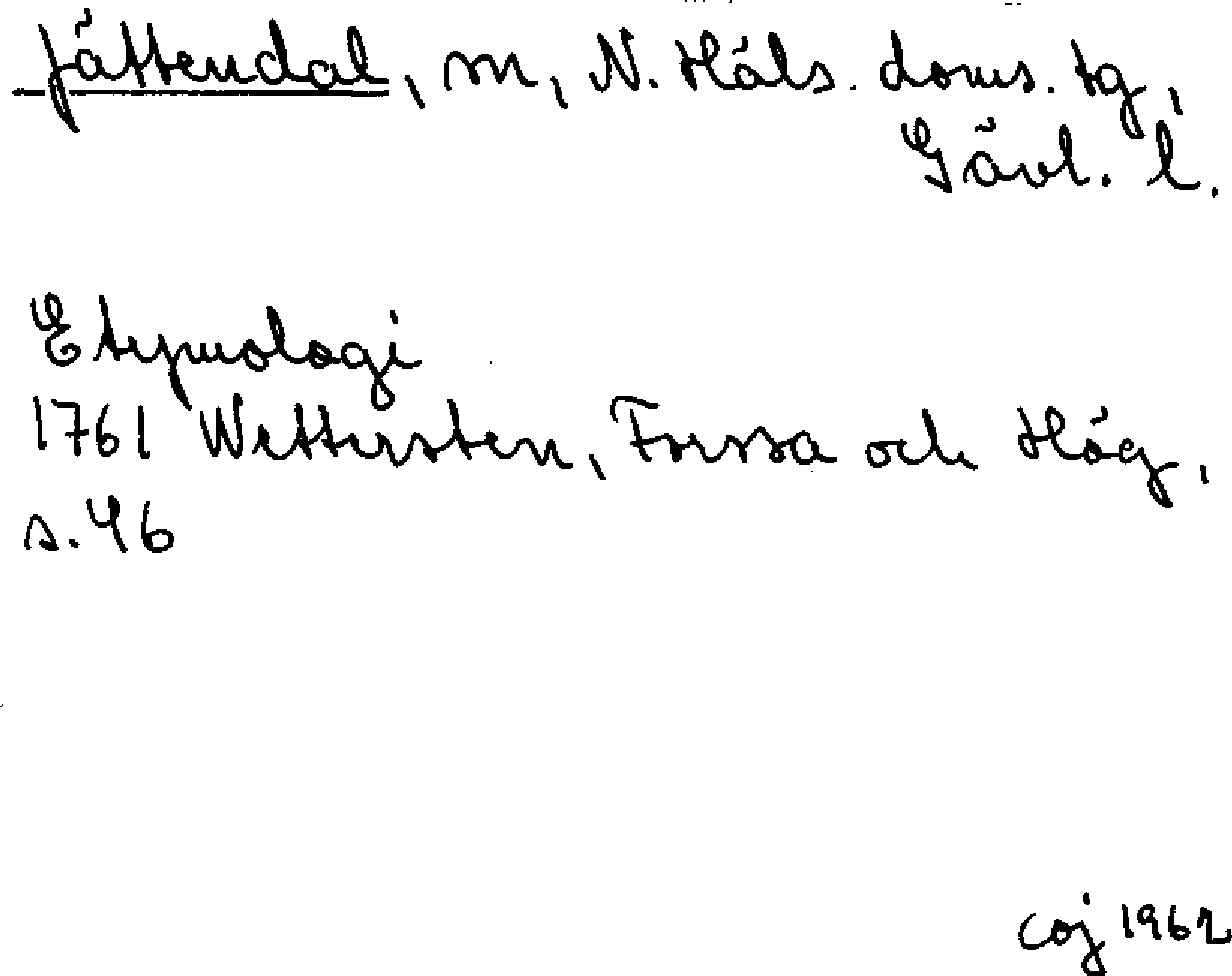 Jättendal, sn, N. Häls. doms. tg,
Gävl. l.
Etymologi
1761 Wettersten, Forssa och Hög,
s. 46
coj 1962